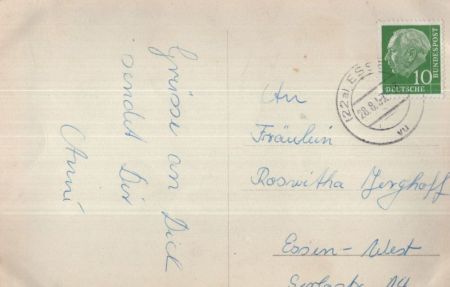 Grüsse an Dich
sendet Dir
Anni
10
DEUTSCHE
BUNDESPOST
(22a) ESS
28.8.
An
Fräulein
Roswitha
Essen-West